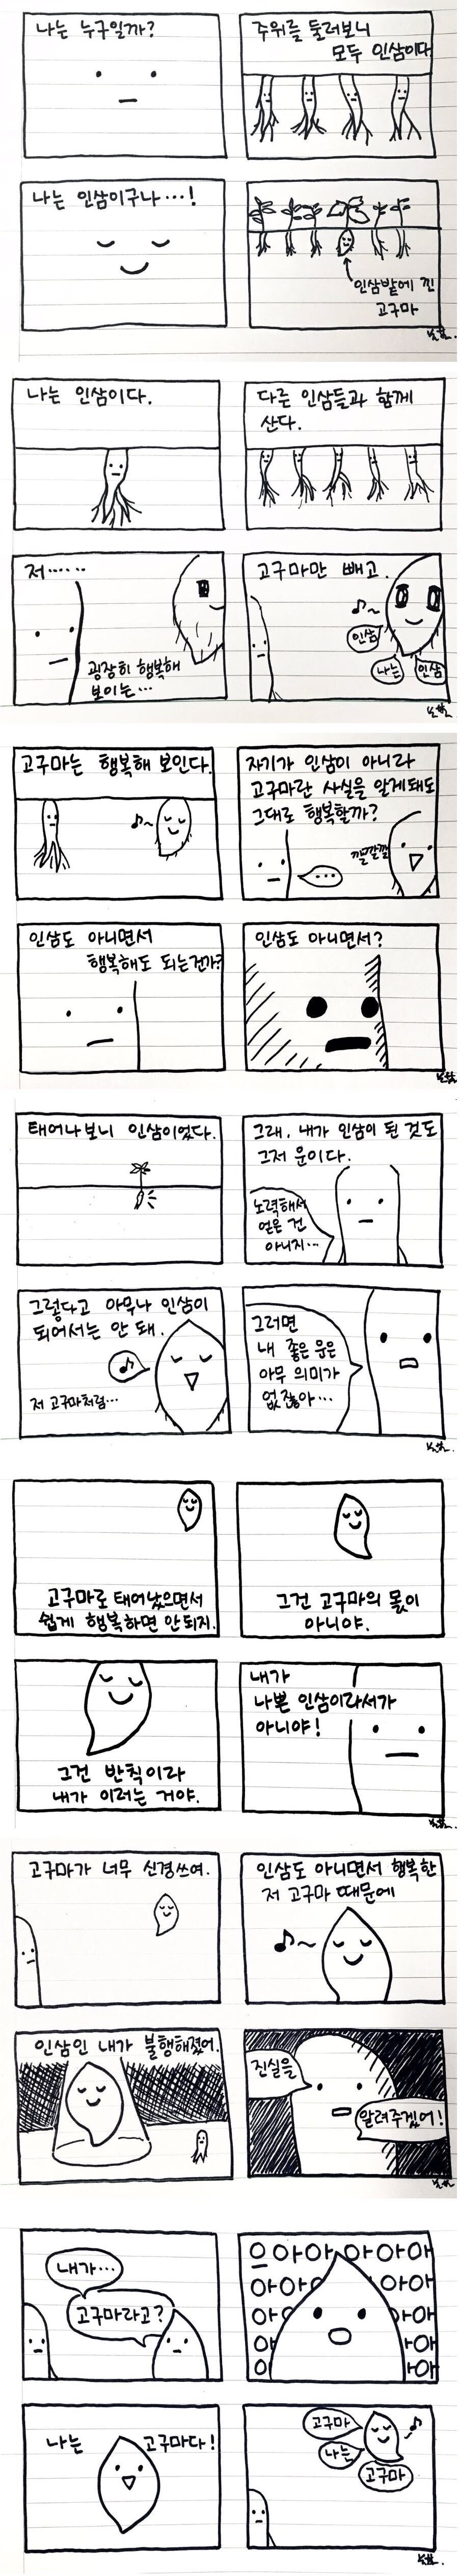 나는 누구일까?
주위를 둘러보니
모두 인삼이다
나는 인삼이구나…!
인삼밭에 낀
고구마
나는 인삼이다.
다른 인삼들과 함께
산다.
저……
굉장히 행복해
보이는…
고구마만 빼고.
인삼
나는
인삼
고구마는 행복해 보인다.
자기가 인삼이 아니라
고구마란 사실을 알게돼도
그대로 행복할까?
깔깔깔
…
인삼도 아니면서
행복해도 되는건가?
인삼도 아니면서?
태어나보니 인삼이었다.
그래, 내가 인삼이 된 것도
그저 운이다.
노력해서
얻은 건
아니지…
그렇다고 아무나 인삼이
되어서는 안 돼.
저 고구마처럼…
그러면
내 좋은 운은
아무 의미가
없잖아…
고구마로 태어났으면서
쉽게 행복하면 안되지.
그건 고구마의 몫이
아니야.
그건 반칙이라
내가 이러는 거야.
내가
나쁜 인삼이라서가
아니야!
고구마가 너무 신경쓰여.
인삼도 아니면서 행복한
저 고구마 때문에
인삼인 내가 불행해졌어.
진실을
알려주겠어!
내가…
고구마라고?
으아아아아아
아아아아
아아아아
아아아
아아아
나는 고구마다!
고구마
나는
고구마